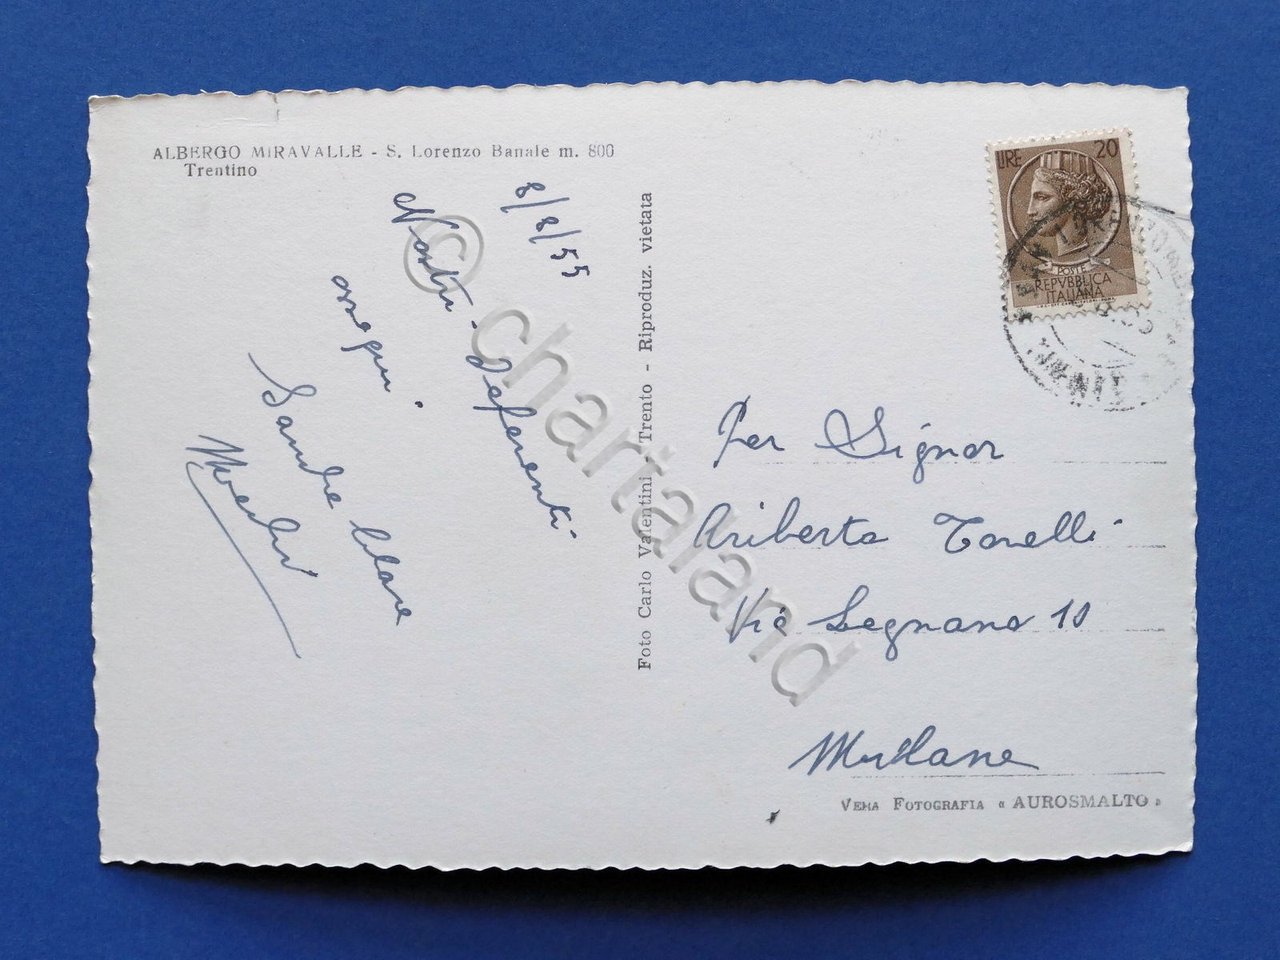 ALBERGO MIRAVALLE - S. Lorenzo Banale m. 800
Trentino
8/8/55
Nostri Deferenti
ossequi.
Sandre Clare
Foto Carlo Valentini - Trento - Riproduz. vietata
LIRE 20
POSTE
REPVBBLICA
ITALIANA
Per Signor
Ariberto Torelli
Via Legnano 10
Milano
VERA FOTOGRAFIA « AUROSMALTO »
© chartaland